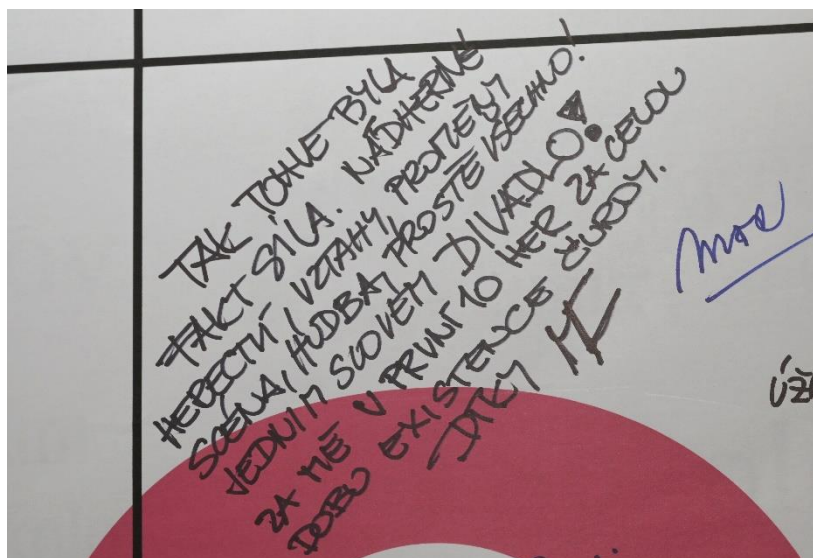 TAK TOHLE BYLA
FAKT SÍLA. NÁDHERNÉ
HERECTVÍ, VZTAHY, PROMĚNY
SCÉNA, HUDBA, PROSTĚ VŠECHNO!
JEDNÍM SLOVEM DIVADLO!
ZA MĚ V PRVNÍ 10 HER ZA CELOU
DOBU EXISTENCE ŽURDY.
DÍKY